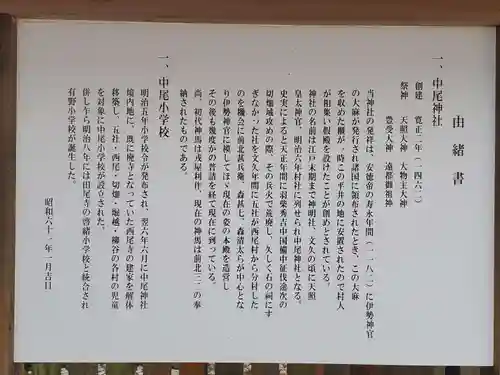 由緒書
一、中尾神社
創建 寛正三年(一四六二)
祭神 天照大神 大物主大神
豊受大神 遠都御祖神
当神社の発祥は、安徳帝の寿永年間(一一八二)に伊勢神宮
の大麻が発行され諸国に頒布されたとき、この大麻
を収めた櫃が一時この平井の地に安置されたので村人
が相集い假殿を設けたことが創めとされている。
神社の名前は江戸末期まで神明社、文久の頃に天照
皇太神宮、明治六年村社に列せられ中尾神社となる。
史実によると天正年間に羽柴秀吉中国備中征伐途次の
切畑城攻めの際、その兵火で荒廃し、久しく石の祠にす
ぎなかった社を文久年間に五社が西尾村から分封した
のを機会に前北甚兵衛、森甚七、森清太らが中心とな
り伊勢神宮に模してほゞ現在の姿の本殿を造営し
その後も幾度かの普請を経て現在に到っている。
尚、初代神馬は戎屋利作、現在の神馬は前北三二の奉
納されたものである。
一、中尾小学校
明治五年小学校令が発布され、翌六年六月に中尾神社
境内地に、既に廃寺となっていた西尾寺の建家を解体
移築し、五社・西尾・切畑・堀越・柳谷の各村の児童
を対象に中尾小学校が設立された。
併し乍ら明治八年には田尾寺の啓緒小学校と統合され
有野小学校が誕生した。
昭和六十二年一月吉日